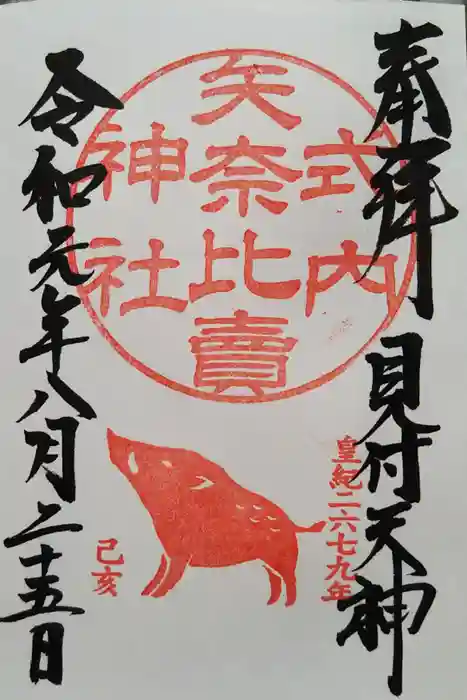 奉拝 見付天神
式内
矢奈比賣
神社
皇紀二六七九年
己亥
令和元年八月二十五日